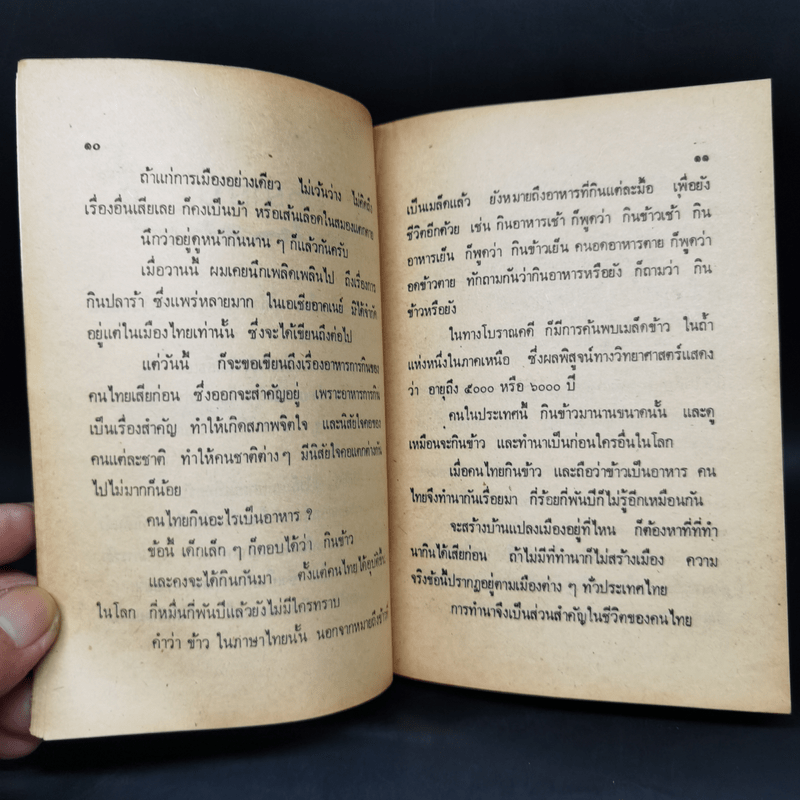 ๑๐
ถ้าแก่การเมืองอย่างเดียว ไม่เว้นว่าง ไม่คิดถึง
เรื่องอื่นเสียเลย ก็คงเป็นบ้า หรือเส้นเลือดในสมองแตกตาย
นึกว่าอยู่ดูหน้ากันนาน ๆ ก็แล้วกันครับ
เมื่อวานนี้ ผมเคยนึกเพลิดเพลินไป ถึงเรื่องการ
กินปลาร้า ซึ่งแพร่หลายมาก ในเอเชียอาคเนย์ มิได้จำกัด
อยู่แต่ในเมืองไทยเท่านั้น ซึ่งจะได้เขียนถึงต่อไป
แต่วันนี้ ก็จะขอเขียนถึงเรื่องอาหารการกินของ
คนไทยเสียก่อน ซึ่งออกจะสำคัญอยู่ เพราะอาหารการกิน
เป็นเรื่องสำคัญ ทำให้เกิดสภาพจิตใจ และนิสัยใจคอของ
คนแต่ละชาติ ทำให้คนชาติต่าง ๆ มีนิสัยใจคอแตกต่างกัน
ไปไม่มากก็น้อย
คนไทยกินอะไรเป็นอาหาร ?
ข้อนี้ เด็กเล็ก ๆ ก็ตอบได้ว่า กินข้าว
และคงจะได้กินกันมา ตั้งแต่คนไทยได้อุบัติขึ้น
ในโลก กี่หมื่นกี่พันปีแล้วยังไม่มีใครทราบ
คำว่า ข้าว ในภาษาไทยนั้น นอกจากหมายถึงข้าวที่
๑๑
เป็นเมล็ดแล้ว ยังหมายถึงอาหารที่กินแต่ละมื้อ เพื่อยัง
ชีวิตอีกด้วย เช่น กินอาหารเช้า ก็พูดว่า กินข้าวเช้า กิน
อาหารเย็น ก็พูดว่า กินข้าวเย็น คนอดอาหารตาย ก็พูดว่า
อดข้าวตาย ทักถามกันว่ากินอาหารหรือยัง ก็ถามว่า กิน
ข้าวหรือยัง
ในทางโบราณคดี ก็มีการค้นพบเมล็ดข้าว ในถ้ำ
แห่งหนึ่งในภาคเหนือ ซึ่งผลพิสูจน์ทางวิทยาศาสตร์แสดง
ว่า อายุถึง ๕๐๐๐ หรือ ๖๐๐๐ ปี
คนในประเทศนี้ กินข้าวมานานขนาดนั้น และดู
เหมือนจะกินข้าว และทำนาเป็นก่อนใครอื่นในโลก
เมื่อคนไทยกินข้าว และถือว่าข้าวเป็นอาหาร คน
ไทยจึงทำนากันเรื่อยมา กี่ร้อยกี่พันปีก็ไม่รู้อีกเหมือนกัน
จะสร้างบ้านแปลงเมืองอยู่ที่ไหน ก็ต้องหาที่ที่ทำ
นากินได้เสียก่อน ถ้าไม่มีที่ทำนาก็ไม่สร้างเมือง ความ
จริงข้อนี้ปรากฏอยู่ตามเมืองต่าง ๆ ทั่วประเทศไทย
การทำนาจึงเป็นส่วนสำคัญในชีวิตของคนไทย